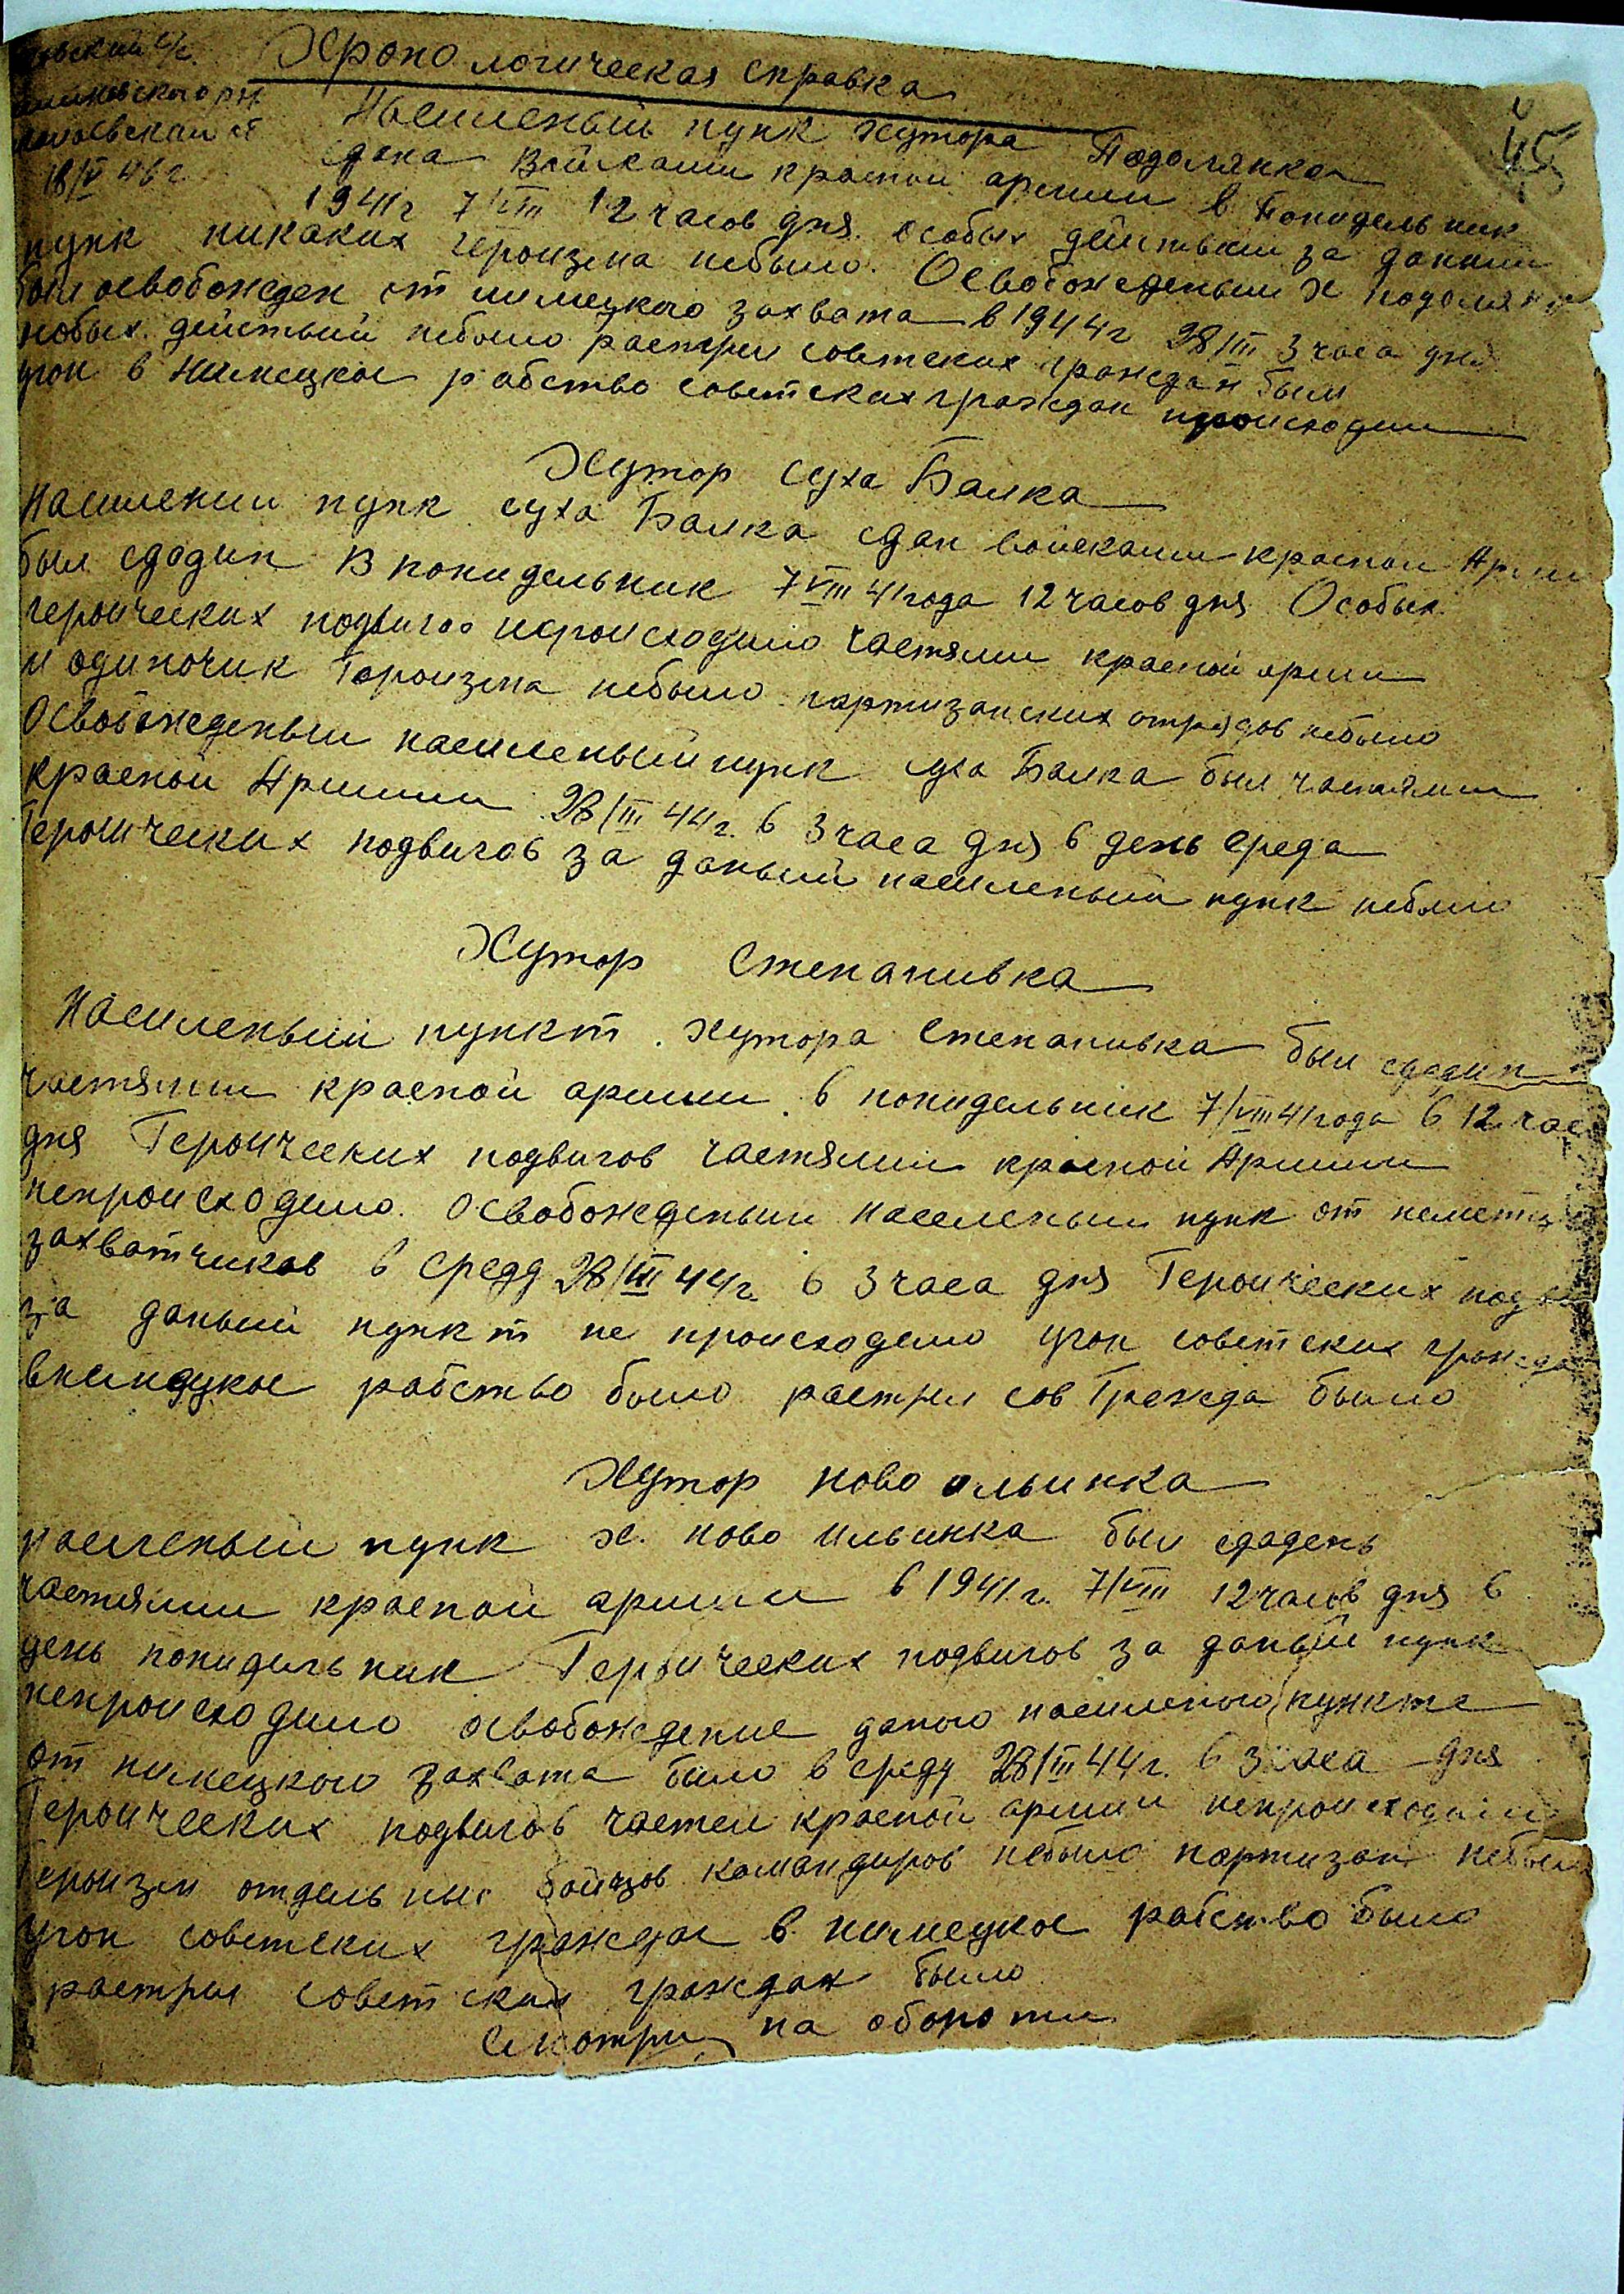 Хронологическая справка
18/V 46 г
45
Насиленый пунк хутора Подолянка
сдена Войсками красной армии в Понидельник
1941 г 7/VIII 12 часов дня. особых действий за даный
пунк никаких героизма небыло. Освобожденый х подолянка
был освобожден от нимецкого захвата в 1944 г 28/III 3 часа дня
особых действий небыло растрел советских граждан был
угон в Нимецкое рабство советских граждан происходил
Хутор суха Балка
Насиленый пунк суха Балка сдан войсками красной Арми
был сдадин в понидельник 7/VIII 41 года 12 часов дня Особых
героических подвигов непроисходило частями красной арми
и одиночик Героизма небыло партизанских отрядов небыло
Освобожденый насиленый пунк суха Балка был частями
красной Армии 28/III 44 г. в 3 часа дня в день среда
Героических подвигов за даный насиленый пунк небыло
Хутор Степанивка
Насиленый пункт. хутора Степанивка был сдадин
частями красной армии. в понидельник 7/VIII 41 года в 12 час
дня Героических подвигов частями красной Армии
непроисходило. освобожденый населеный пунк от неметц
захватчиков в среду 28/III 44 г. в 3 часа дня Героических подв
за даный пункт не происходило угон советских гражда
внимецкое рабство было растрел сов Гражда было
Хутор ново ильинка
насиленый пунк х. ново ильинка был сдадень
частями красной армии в 1941. г. 7/VIII 12 часов дня в
день понидильник Героических подвигов за даный пунк
непроисходило освобождение даного насиленого пункта
от нимецкого захвата было в среду 28/III 44 г. в 3 часа дня
Героических подвигов частей красной армии непроисходило
Героизм отдельных бойцов командиров небыло партизан небыло
Угон советских граждан в нимецкое рабство было
растрел советских граждан было
Смотри на обороти